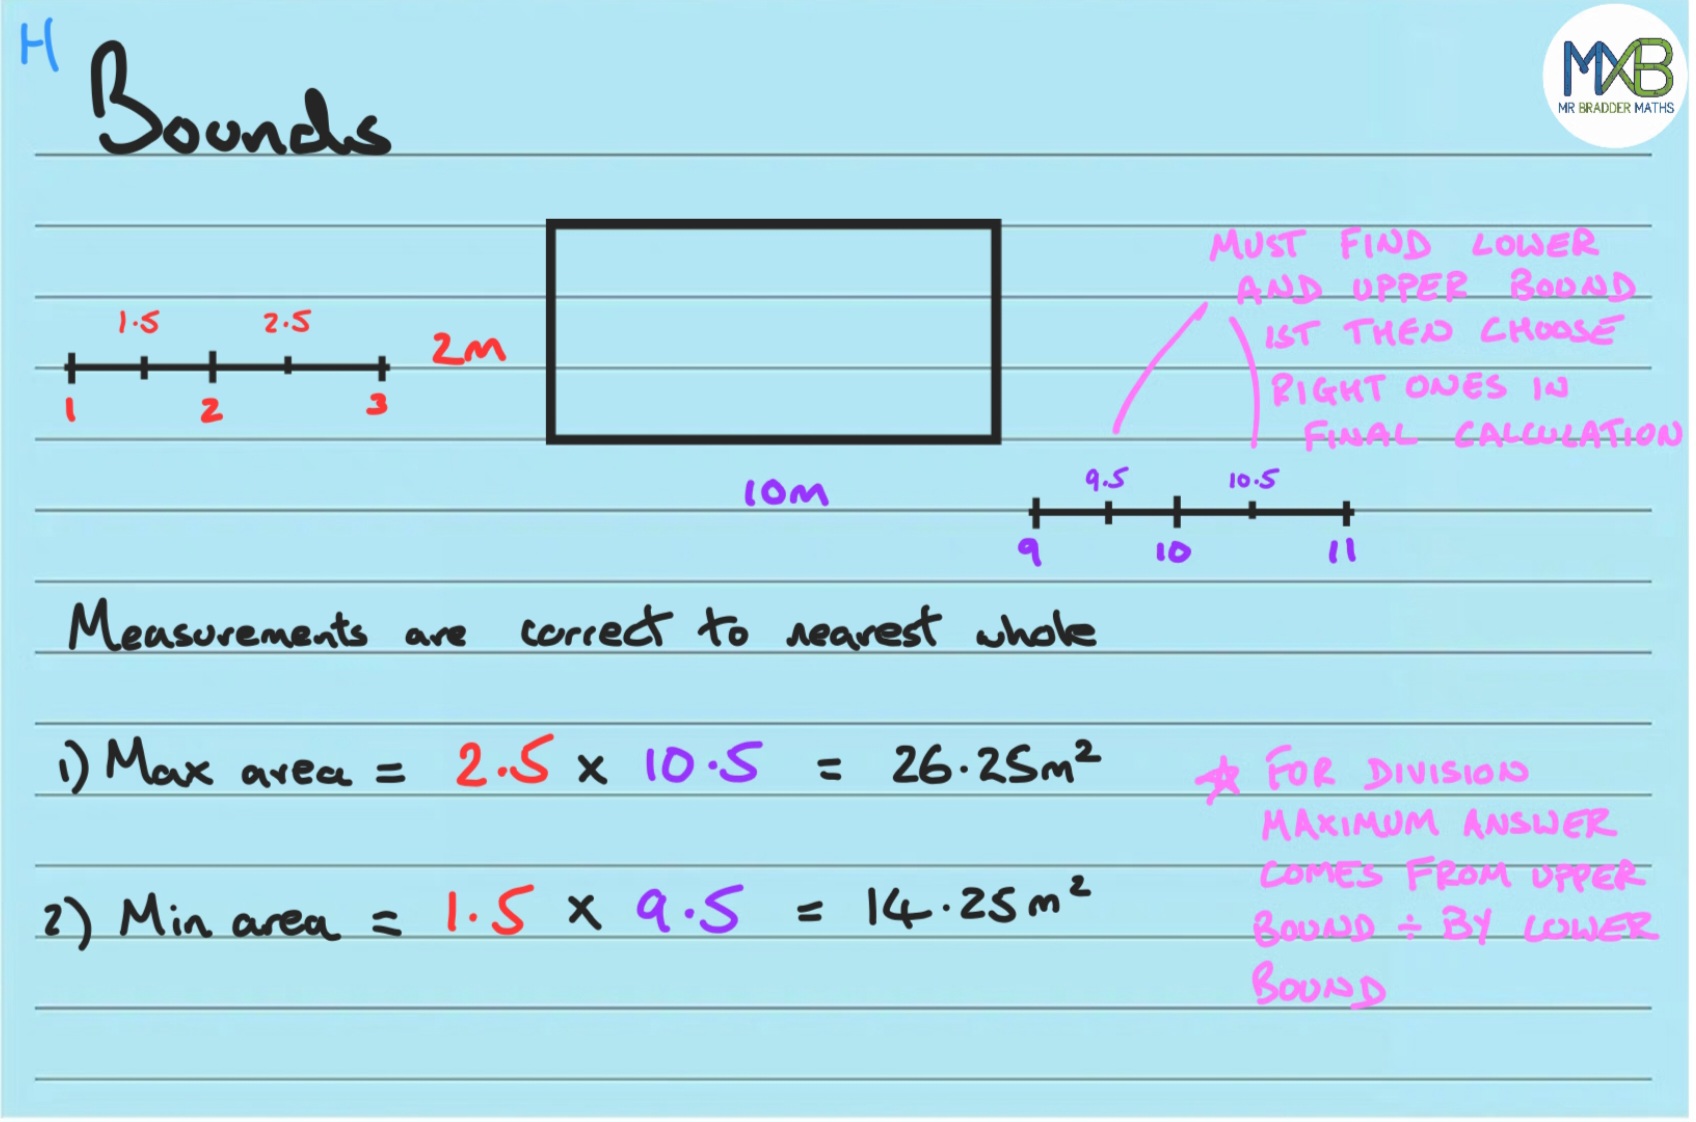 H
Bounds
MXB
MR BRADDER MATHS
MUST FIND LOWER
AND UPPER BOUND
1ST THEN CHOOSE
RIGHT ONES IN
FINAL CALCULATION
1.5 2.5
1 2 3
2m
10m
9.5 10.5
9 10 11
Measurements are correct to nearest whole
1) Max area = 2.5 x 10.5 = 26.25m²
2) Min area = 1.5 x 9.5 = 14.25m²
☆ FOR DIVISION
MAXIMUM ANSWER
COMES FROM UPPER
BOUND ÷ BY LOWER
BOUND